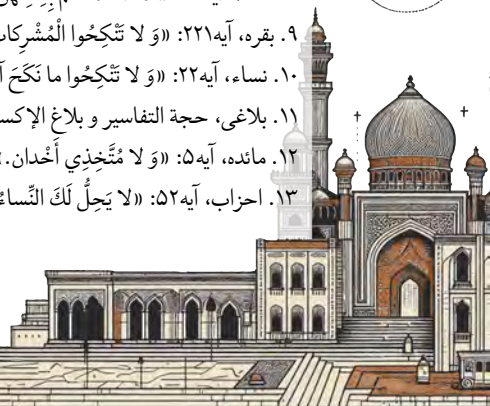 ۹. بقره، آیه۲۲۱: «وَ لا تَنْكِحُوا الْمُشْرِكاتِ
۱۰. نساء، آیه۲۲: «وَ لا تَنْكِحُوا ما نَكَحَ آ
۱۱. بلاغی، حجة التفاسير و بلاغ الإكس
۱۲. مائده، آیه۵: «وَ لا مُتَّخِذِي أَخْدان.»
۱۳. احزاب، آیه۵۲: «لا يَحِلُّ لَكَ النِّساءُ